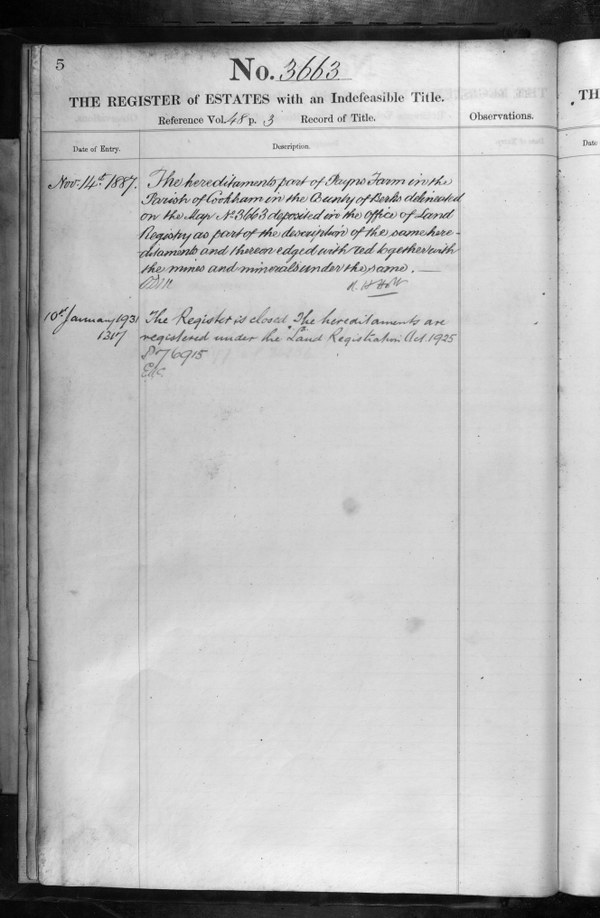 5
No. 3663
THE REGISTER of ESTATES with an Indefeasible Title.
Reference Vol. 48 p. 3 Record of Title.
Observations.
Date of Entry.
Description.
Nov. 14th 1887.
The hereditaments part of Payns Farm in the
Parish of Cookham in the County of Berks delineated
on the Map No. 3663 deposited in the Office of Land
Registry as part of the description of the same here-
ditaments and thereon edged with red together with
the mines and minerals under the same.
R H Holt
10th January 1931
The Register is closed. The hereditaments are
registered under the Land Registration Act 1925
TH
Date